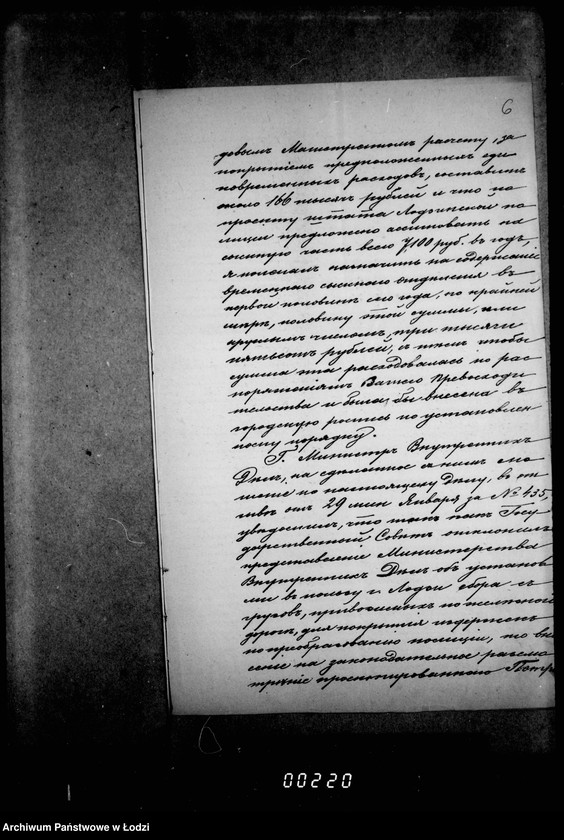 6
довымъ Магистратомъ расчету, за
покрытіемъ предположенныхъ еди
новременныхъ расходовъ, составитъ
около 166 тысячъ рублей и что по
проекту штата Лодзинской по
лиціи предложено ассигновать на
сыскную часть всего 7100 руб. въ годъ,
я полагалъ назначить на содержаніе
временнаго сыскнаго отдѣленія въ
первой половинѣ сего года, по крайней
мѣрѣ, половину этой суммы, или
круглымъ числомъ, три тысячи
пятьсотъ рублей, съ тѣмъ чтобы
сумма эта расходовалась по рас
поряженіямъ Вашего Превосходи
тельства и была бы внесена въ
городскую роспись по установлен
ному порядку.
Г. Министръ Внутреннихъ
Дѣлъ, на сдѣланное я нимъ сно
шеніе по настоящему Дѣлу, въ от
зывѣ отъ 29 мин. Января за № 435,
увѣдомилъ, что такъ какъ Госу
дарственный Совѣтъ отклонилъ
представленіе Министерства
Внутреннихъ Дѣлъ объ установ
ліи въ пользу г. Лодзи сбора съ
грузовъ, привозимыхъ по желѣзной
дорогѣ, для покрытія издержекъ
по преобразованію полиціи, то вне
сеніе на законодательное разсмо
трѣніе проектированнаго Петро
00220
Archiwum Państwowe w Łodzi